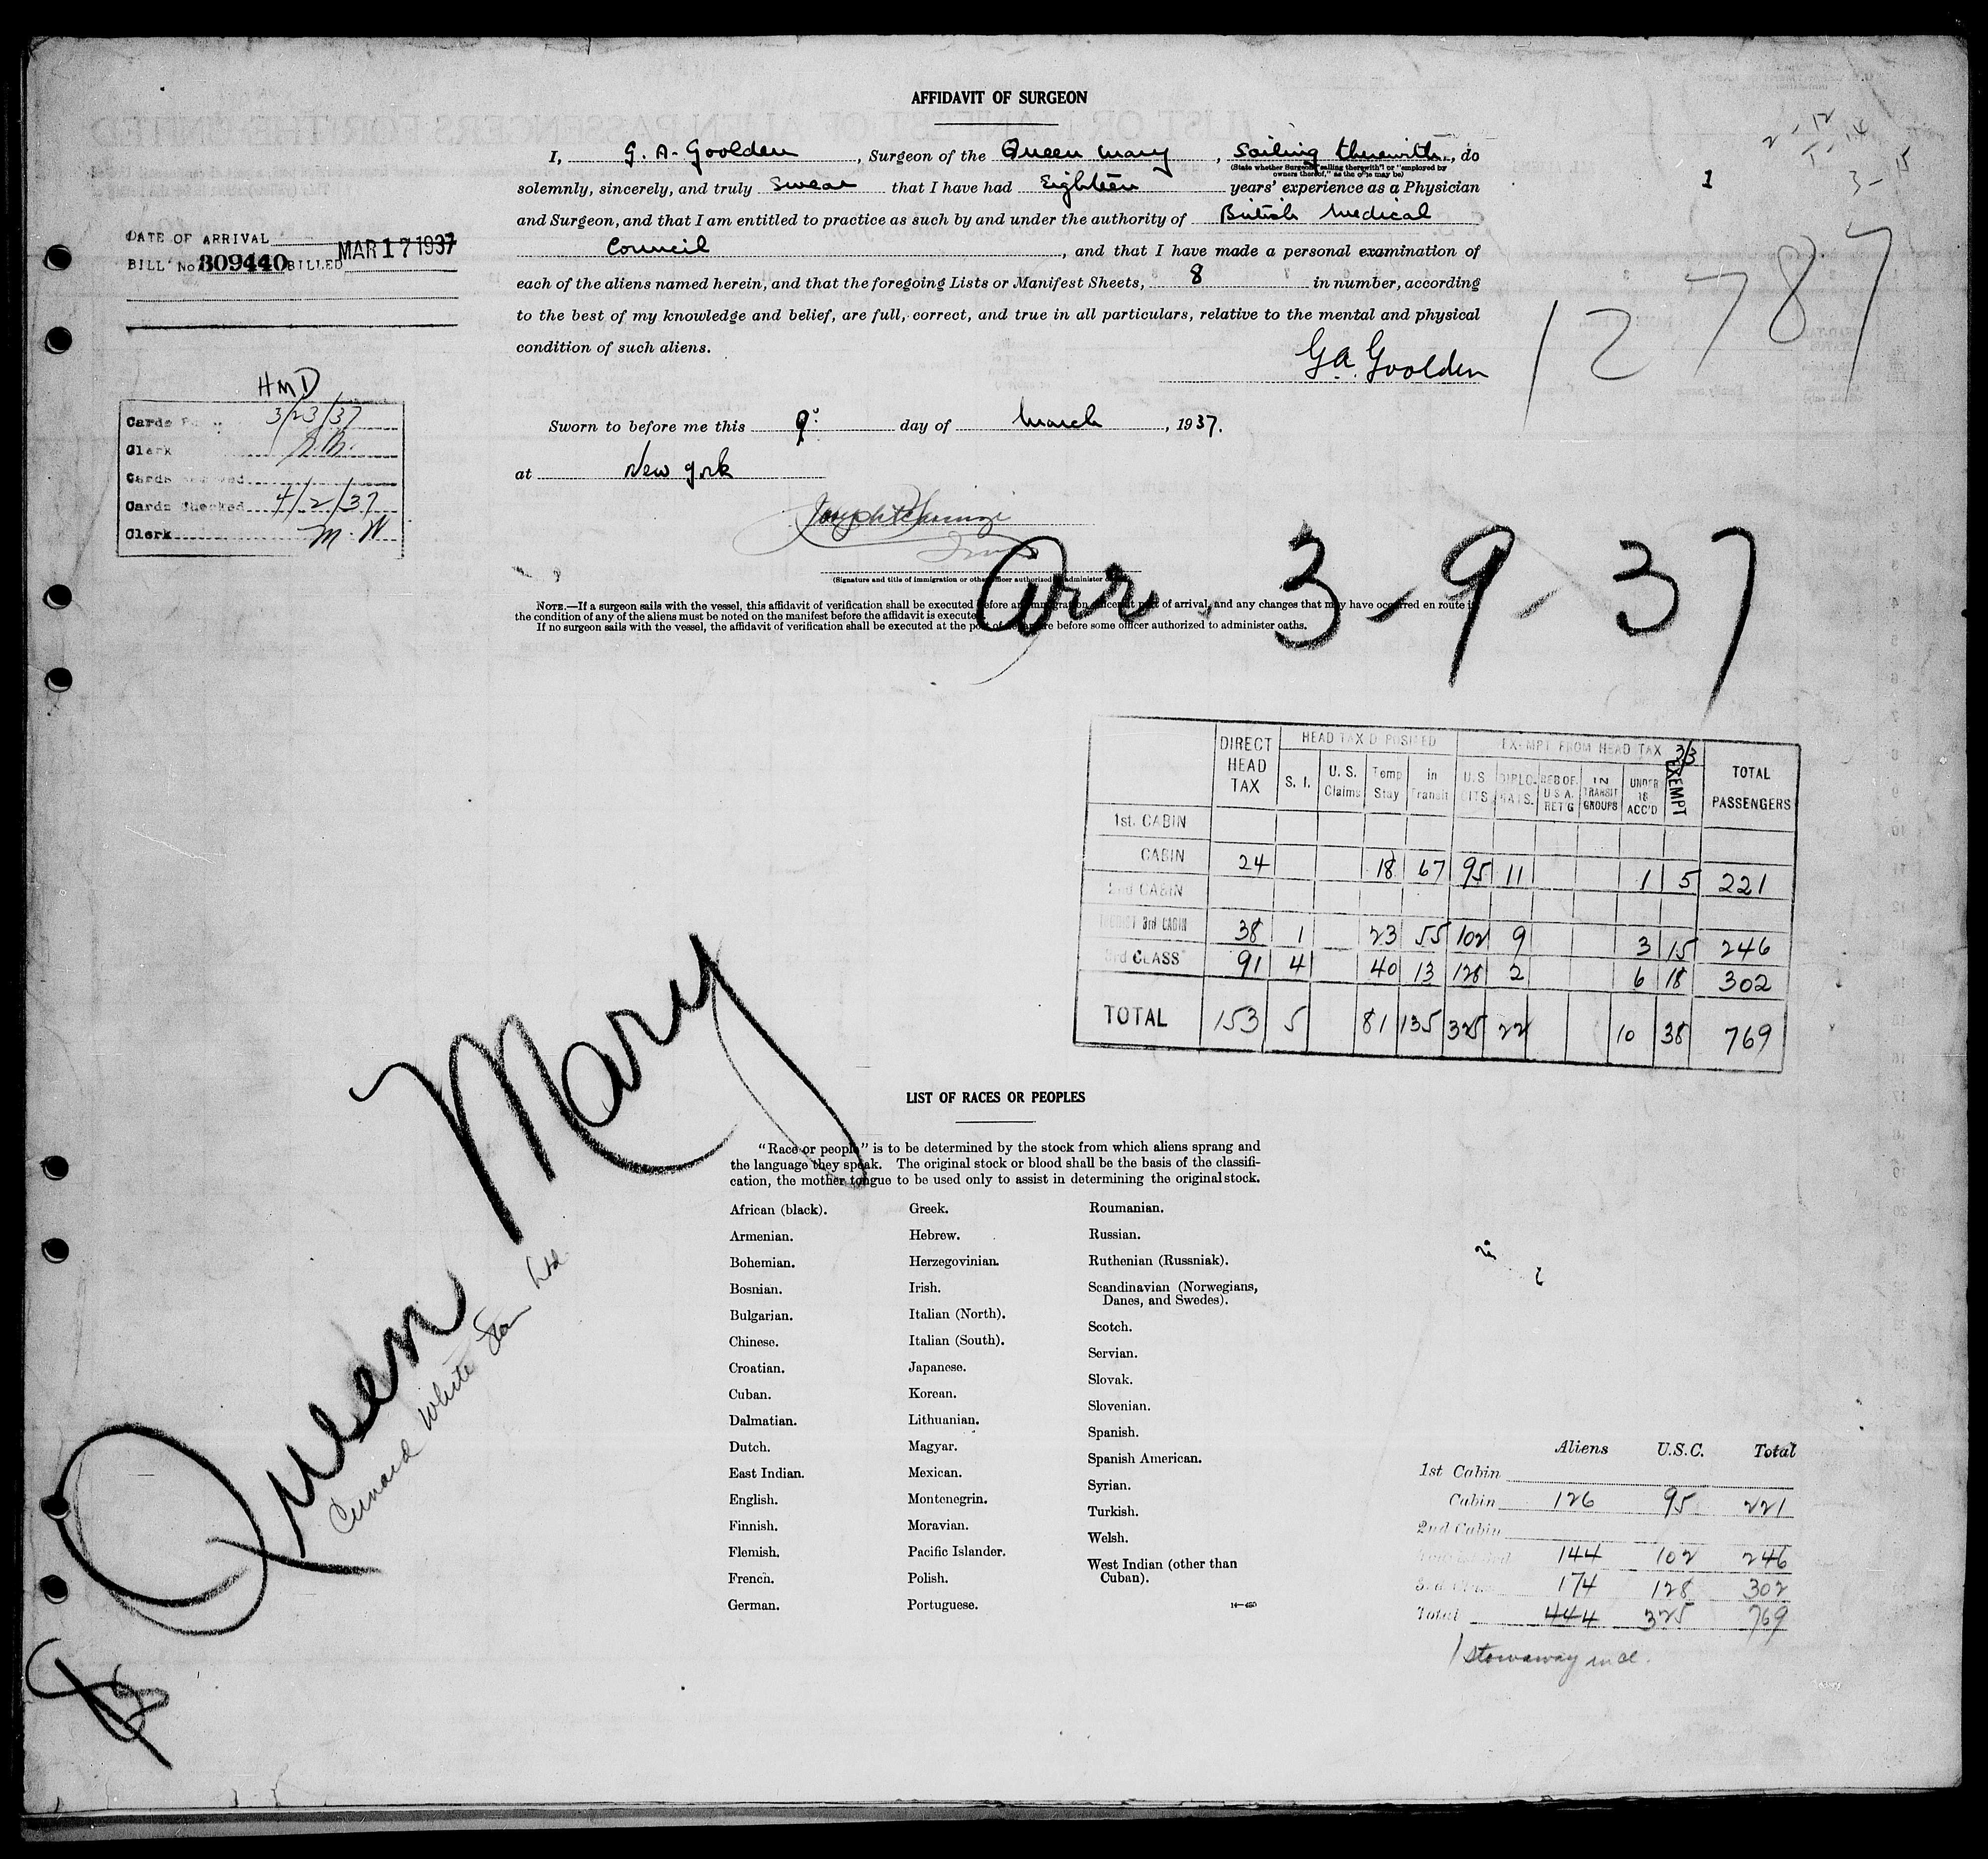 AFFIDAVIT OF SURGEON
I, G. A. Goolden, Surgeon of the Queen Mary, Sailing therewith, do
(State whether Surgeon "sailing therewith" or "employed by
owners thereof," as the case may be)
solemnly, sincerely, and truly swear that I have had Eighteen years' experience as a Physician
and Surgeon, and that I am entitled to practice as such by and under the authority of British Medical
Council, and that I have made a personal examination of
each of the aliens named herein, and that the foregoing Lists or Manifest Sheets, 8 in number, according
to the best of my knowledge and belief, are full, correct, and true in all particulars, relative to the mental and physical
condition of such aliens.
G A Goolden
Sworn to before me this 9 day of March, 1937.
at New York
(Signature and title of immigration or other officer authorized to administer
NOTE.—If a surgeon sails with the vessel, this affidavit of verification shall be executed before an immigration officer at port of arrival, and any changes that may have occurred en route in
the condition of any of the aliens must be noted on the manifest before the affidavit is executed.
If no surgeon sails with the vessel, the affidavit of verification shall be executed at the port of departure before some officer authorized to administer oaths.
DATE OF ARRIVAL
BILL No. 309440 BILLED MAR 17 1937
HMD
Cards 3/23/37
Clerk
Cards
Cards Checked 4/2/37
Clerk M. W
1
2-12
1-14
3-15
12787
Arr. 3-9-37
DIRECT HEAD TAX
HEAD TAX DEPOSITED
EXEMPT FROM HEAD TAX
3/3
TOTAL PASSENGERS
S. I.
U. S. Claims
Temp Stay
in Transit
U.S. CITS.
DIPLOMATS.
RES OF U.S.A. RET'G
IN TRANSIT GROUPS
UNDER 16 ACC'D
EXEMPT
1st. CABIN
CABIN 24 18 67 95 11 1 5 221
2nd CABIN
TOURIST 3rd CABIN 38 1 23 55 102 9 3 15 246
3rd CLASS 91 4 40 13 128 2 6 18 302
TOTAL 153 5 81 135 325 22 10 38 769
Queen Mary
Cunard White Star Ltd
LIST OF RACES OR PEOPLES
"Race or people" is to be determined by the stock from which aliens sprang and
the language they speak. The original stock or blood shall be the basis of the classifi-
cation, the mother tongue to be used only to assist in determining the original stock.
African (black).
Armenian.
Bohemian.
Bosnian.
Bulgarian.
Chinese.
Croatian.
Cuban.
Dalmatian.
Dutch.
East Indian.
English.
Finnish.
Flemish.
French.
German.
Greek.
Hebrew.
Herzegovinian.
Irish.
Italian (North).
Italian (South).
Japanese.
Korean.
Lithuanian.
Magyar.
Mexican.
Montenegrin.
Moravian.
Pacific Islander.
Polish.
Portuguese.
Roumanian.
Russian.
Ruthenian (Russniak).
Scandinavian (Norwegians,
Danes, and Swedes).
Scotch.
Servian.
Slovak.
Slovenian.
Spanish.
Spanish American.
Syrian.
Turkish.
Welsh.
West Indian (other than
Cuban).
14—450
Aliens U.S.C. Total
1st Cabin
Cabin 126 95 221
2nd Cabin
144 102 246
174 128 302
Total 444 325 769
1 stowaway incl.